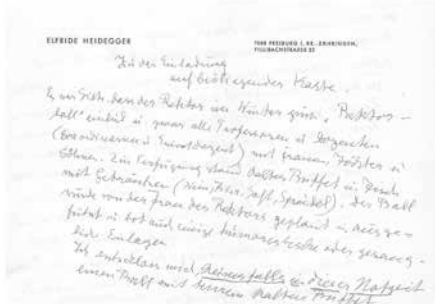 ELFRIDE HEIDEGGER
7800 FREIBURG I. BR.-ZÄHRINGEN,
FILLIBACHSTRASSE 25
Zu der Einladung
auf beiliegender Karte.
Es war Sitte, dass der Rektor im Winter einen „Rektor-
ball" einlud u. zwar alle Professoren u. Dozenten
u. Privatdozent) mit Frauen, Töchter u.
Söhnen. Zur Verfügung stand kaltes Buffet u. Tisch
mit Getränken (Wein, Bier, Saft, Sprudel). Der Ball
wurde von der Frau des Rektors geplant u. ausge-
führt u. bot auch einige humoristische oder gesang-
liche Einlagen
Ich entschloss mich, keinesfalls in dieser Notzeit
einen Ball mit kaltem Buffet